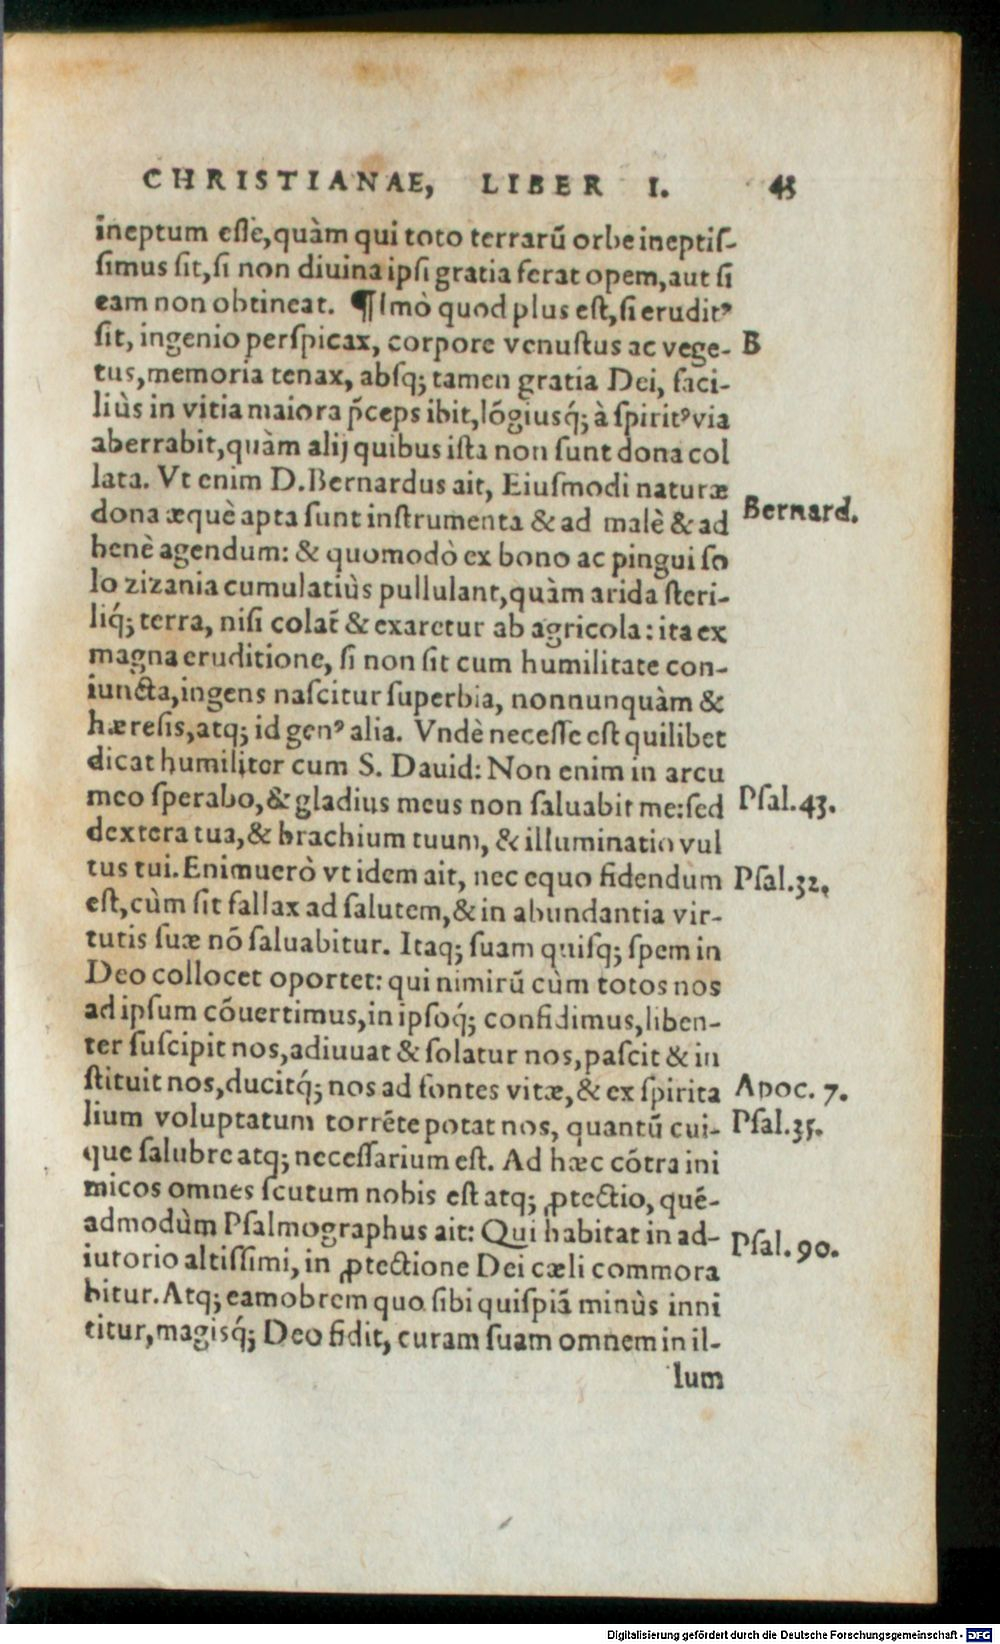 CHRISTIANAE, LIBER I. 45
ineptum esse, quàm qui toto terrarũ orbe ineptiſ-
ſimus ſit, ſi non diuina ipſi gratia ferat opem, aut ſi
eam non obtineat. ¶ Imò quod plus eſt, ſi erudit⁹
ſit, ingenio perſpicax, corpore venuſtus ac vege- B
tus, memoria tenax, abſq; tamen gratia Dei, faci-
liùs in vitia maiora p̃ceps ibit, lõgiusq́; à ſpirit⁹ via
aberrabit, quàm alij quibus iſta non ſunt dona col
lata. Vt enim D. Bernardus ait, Eiuſmodi naturæ
dona æquè apta ſunt inſtrumenta & ad malè & ad Bernard.
benè agendum: & quomodò ex bono ac pingui ſo
lo zizania cumulatiùs pullulant, quàm arida ſteri-
liq́; terra, niſi colat̃ & exaretur ab agricola: ita ex
magna eruditione, ſi non ſit cum humilitate con-
iuncta, ingens naſcitur ſuperbia, nonnunquàm &
hæreſis, atq; id gen⁹ alia. Vndè neceſſe eſt quilibet
dicat humiliter cum S. Dauid: Non enim in arcu
meo ſperabo, & gladius meus non ſaluabit me: ſed Pſal.43.
dextera tua, & brachium tuum, & illuminatio vul
tus tui. Enimuerò vt idem ait, nec equo fidendum Pſal.32.
eſt, cùm ſit fallax ad ſalutem, & in abundantia vir-
tutis ſuæ nõ ſaluabitur. Itaq; ſuam quiſq; ſpem in
Deo collocet oportet: qui nimirũ cùm totos nos
ad ipſum cõuertimus, in ipſoq́; confidimus, liben-
ter ſuſcipit nos, adiuuat & ſolatur nos, paſcit & in
ſtituit nos, ducitq́; nos ad fontes vitæ, & ex ſpirita Apoc. 7.
lium voluptatum torrẽte potat nos, quantũ cui- Pſal.35.
que ſalubre atq; neceſſarium eſt. Ad hæc cõtra ini
micos omnes ſcutum nobis eſt atq; ꝓtectio, quẽ-
admodùm Pſalmographus ait: Qui habitat in ad- Pſal. 90.
iutorio altiſſimi, in ꝓtectione Dei cæli commora
bitur. Atq; eamobrem quo ſibi quiſpiã minùs inni
titur, magisq́; Deo fidit, curam ſuam omnem in il-
lum
Digitalisierung gefördert durch die Deutsche Forschungsgemeinschaft - DFG